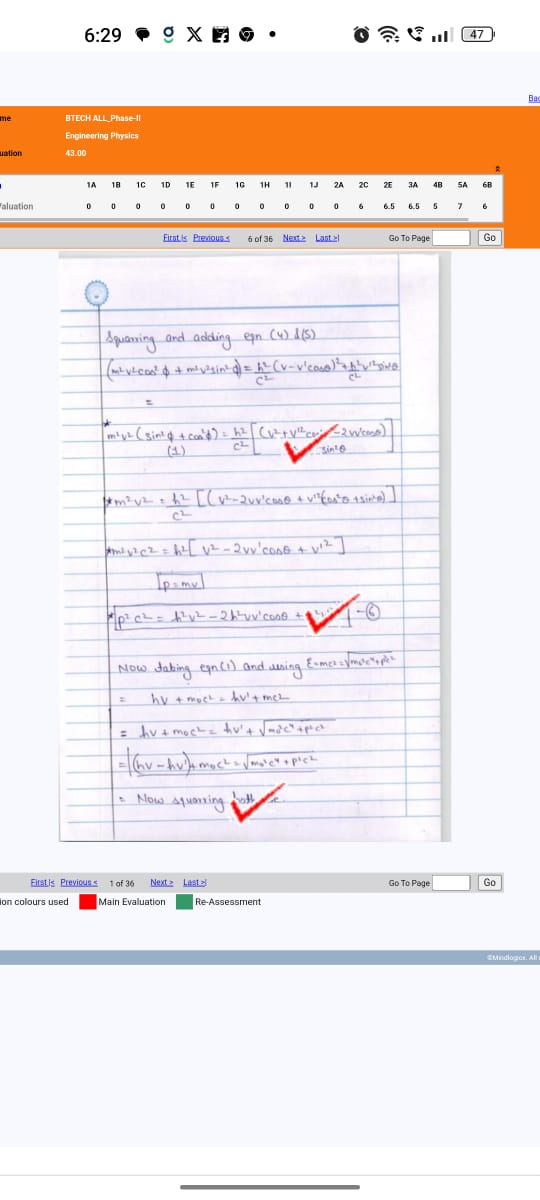 6:29
47
Bac
me
BTECH ALL_Phase-II
Engineering Physics
uation
43.00
1A 1B 1C 1D 1E 1F 1G 1H 1I 1J 2A 2C 2E 3A 4B 5A 6B
aluation 0 0 0 0 0 0 0 0 0 0 0 6 6.5 6.5 5 7 6
First |< Previous < 6 of 36 Next > Last >| Go To Page Go
Squaring and adding eqn (4) & (5)
(m²v²cos²ϕ + m²v²sin²ϕ) = h²/c² (v-v'cosθ)² + h²/c² v'²sin²θ
=
*m²v² (sin²ϕ + cos²ϕ) = h²/c² [(v² + v'² -2vv'cosθ)]
(1) sin²θ
*m²v² = h²/c² [(v²-2vv'cosθ + v'²(cos²θ + sin²θ)]
*m²v²c² = h²[v² - 2vv'cosθ + v'²]
p = mv
*p²c² = h²v² - 2h²vv'cosθ + -⑥
Now taking eqn (1) and using E=mc²=√m₀²c⁴+p²c²
= hv + m₀c² = hv' + mc²
= hv + m₀c² = hv' + √m₀²c⁴+p²c²
= (hv - hv') + m₀c² = √m₀²c⁴ + p²c²
= Now squaring both
First |< Previous < 1 of 36 Next > Last >| Go To Page Go
ion colours used Main Evaluation Re-Assessment
©Mindlogicx. All